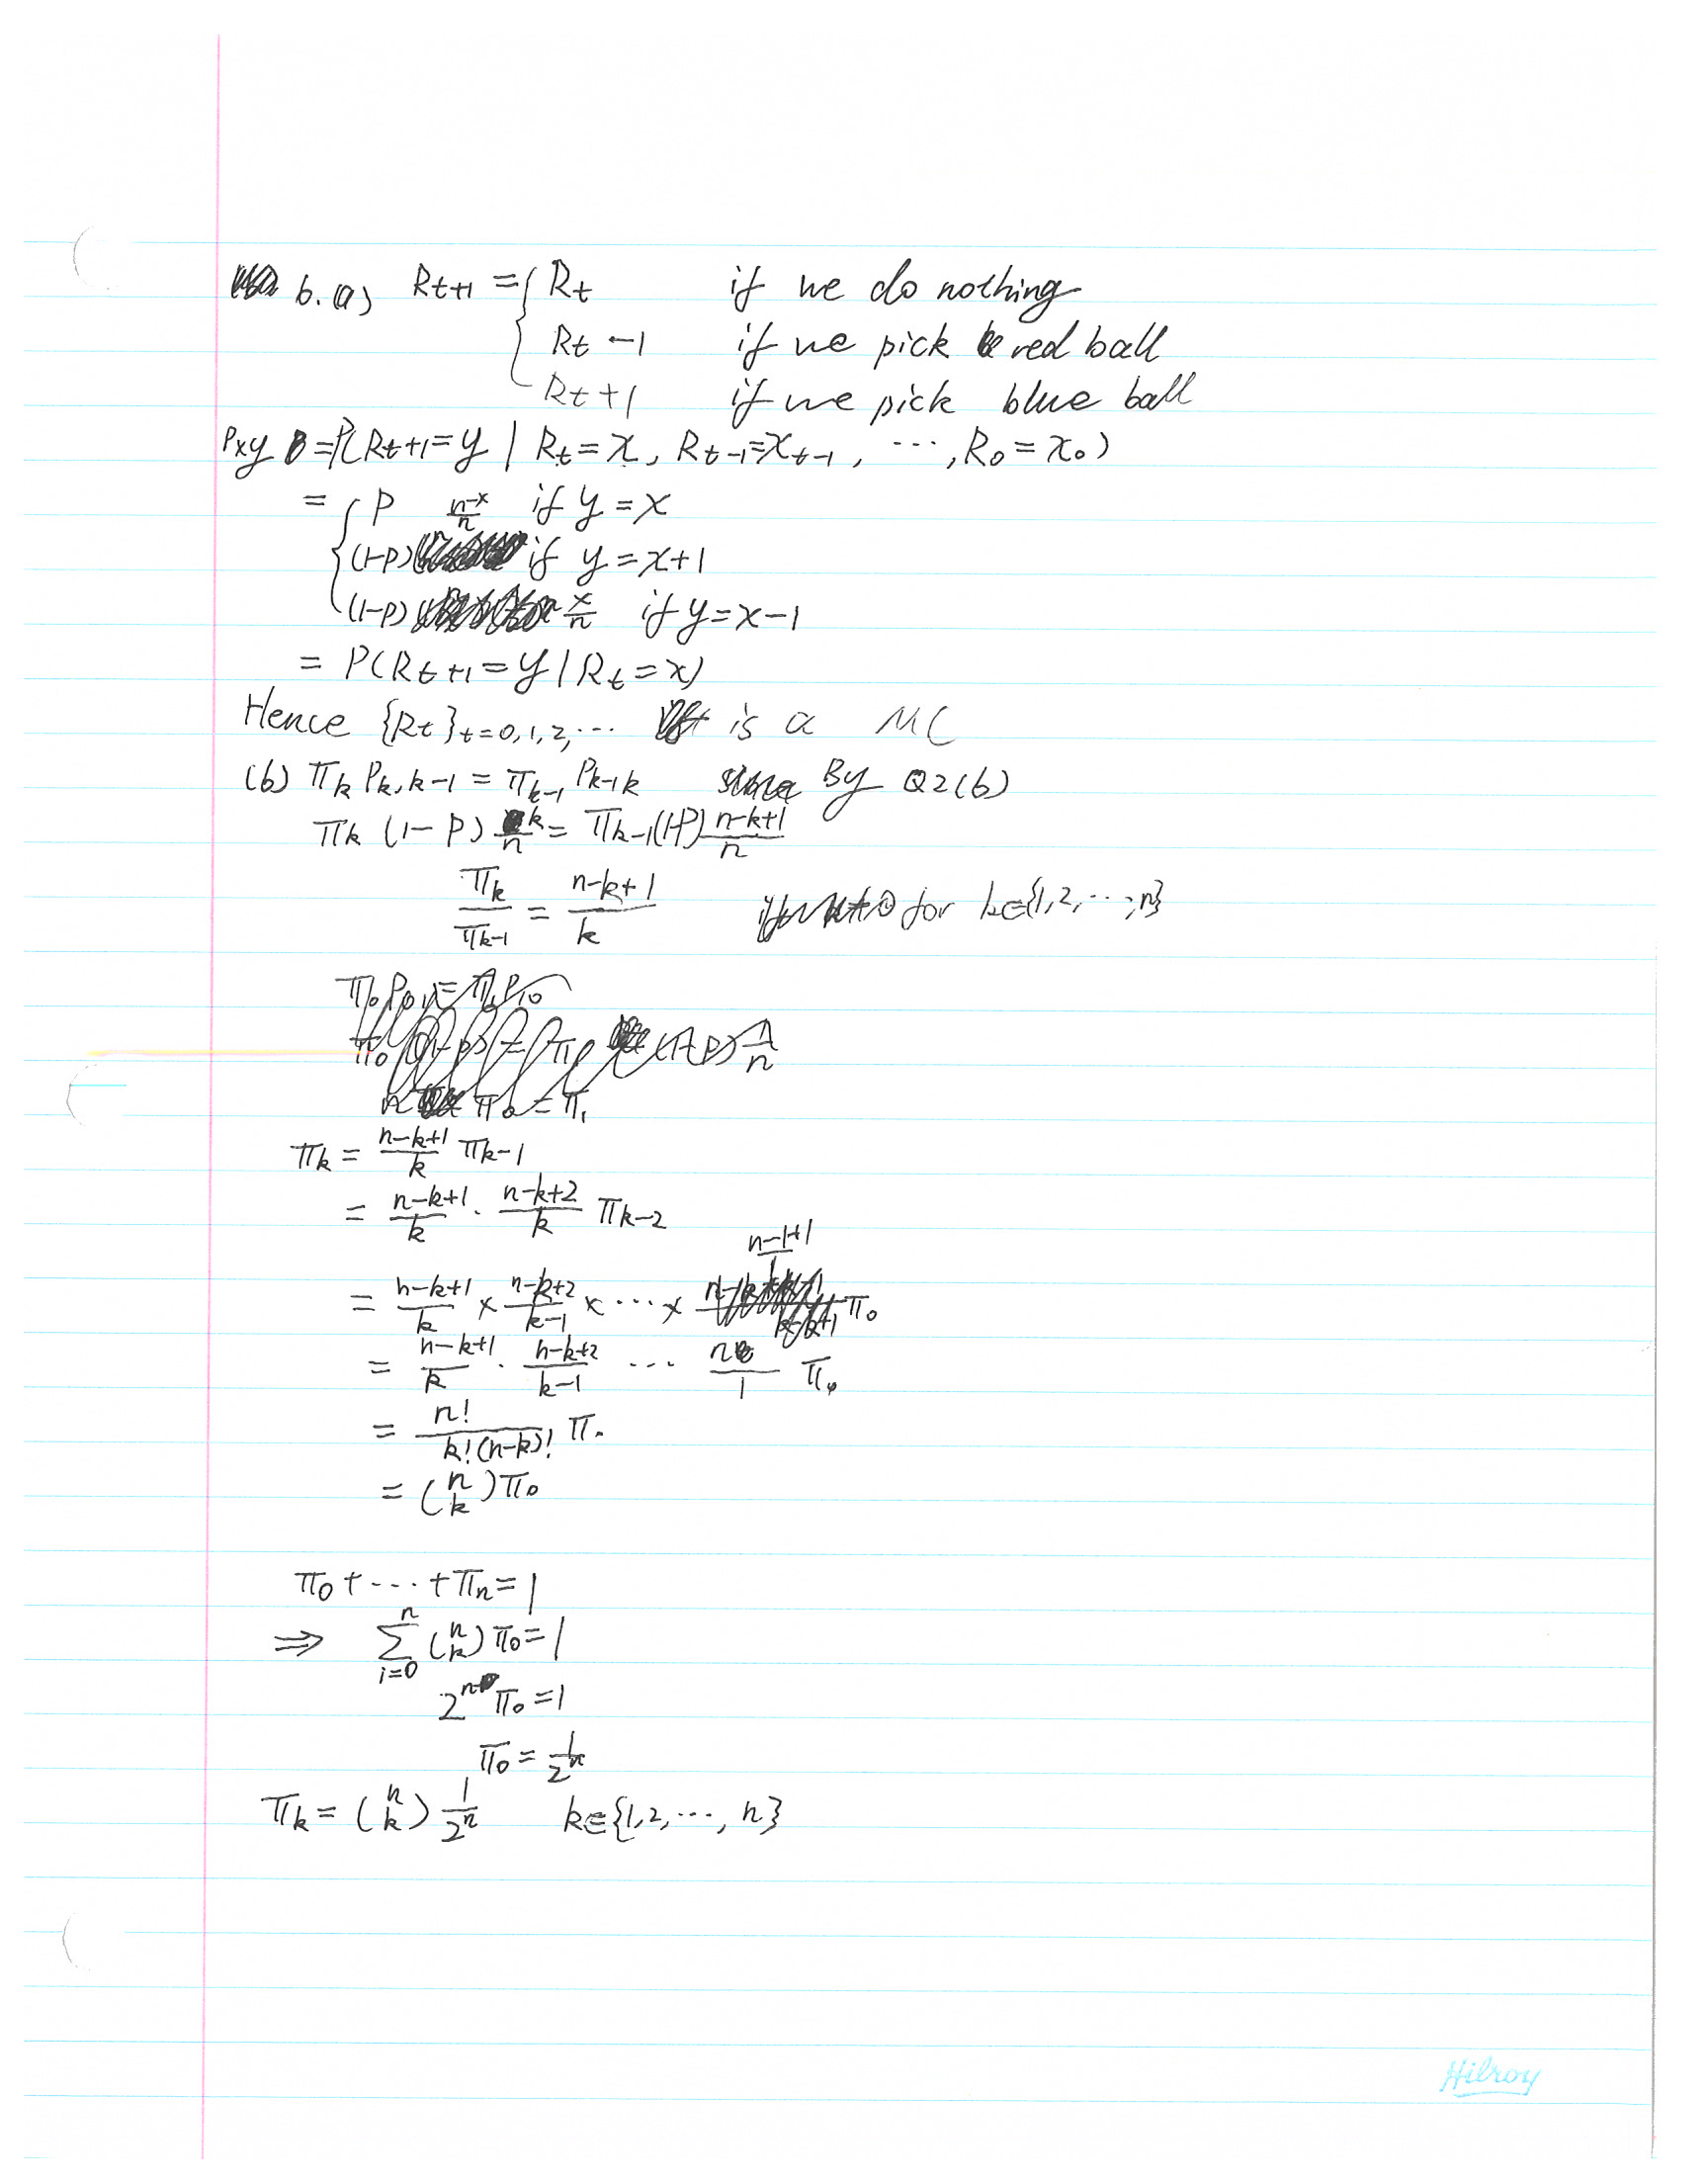 6. (a) Rt+1 = { Rt if we do nothing
Rt -1 if we pick red ball
Rt +1 if we pick blue ball
Pxy = P(Rt+1 = y | Rt = x, Rt-1 = xt-1, ..., R0 = x0)
= { p if y = x
(1-p) (n-x)/n if y = x+1
(1-p) x/n if y = x-1
= P(Rt+1 = y | Rt = x)
Hence {Rt}t=0,1,2,... is a MC
(b) πk Pk,k-1 = πk-1 Pk-1k By Q2(b)
πk (1-p) k/n = πk-1 (1-p) (n-k+1)/n
πk/πk-1 = (n-k+1)/k for k∈{1,2,...,n}
π0 P01 = π1 P10
n π0 = π1
πk = (n-k+1)/k πk-1
= (n-k+1)/k · (n-k+2)/k πk-2
= (n-k+1)/k × (n-k+2)/(k-1) × ... × (n-1+1)/1 π0
= (n-k+1)/k · (n-k+2)/(k-1) ... n/1 π0
= n!/(k!(n-k)!) π0
= (n k) π0
π0 + ... + πn = 1
⇒ Σ i=0 n (n k) π0 = 1
2^n π0 = 1
π0 = 1/2^n
πk = (n k) 1/2^n k∈{1,2,..., n}
Hilroy